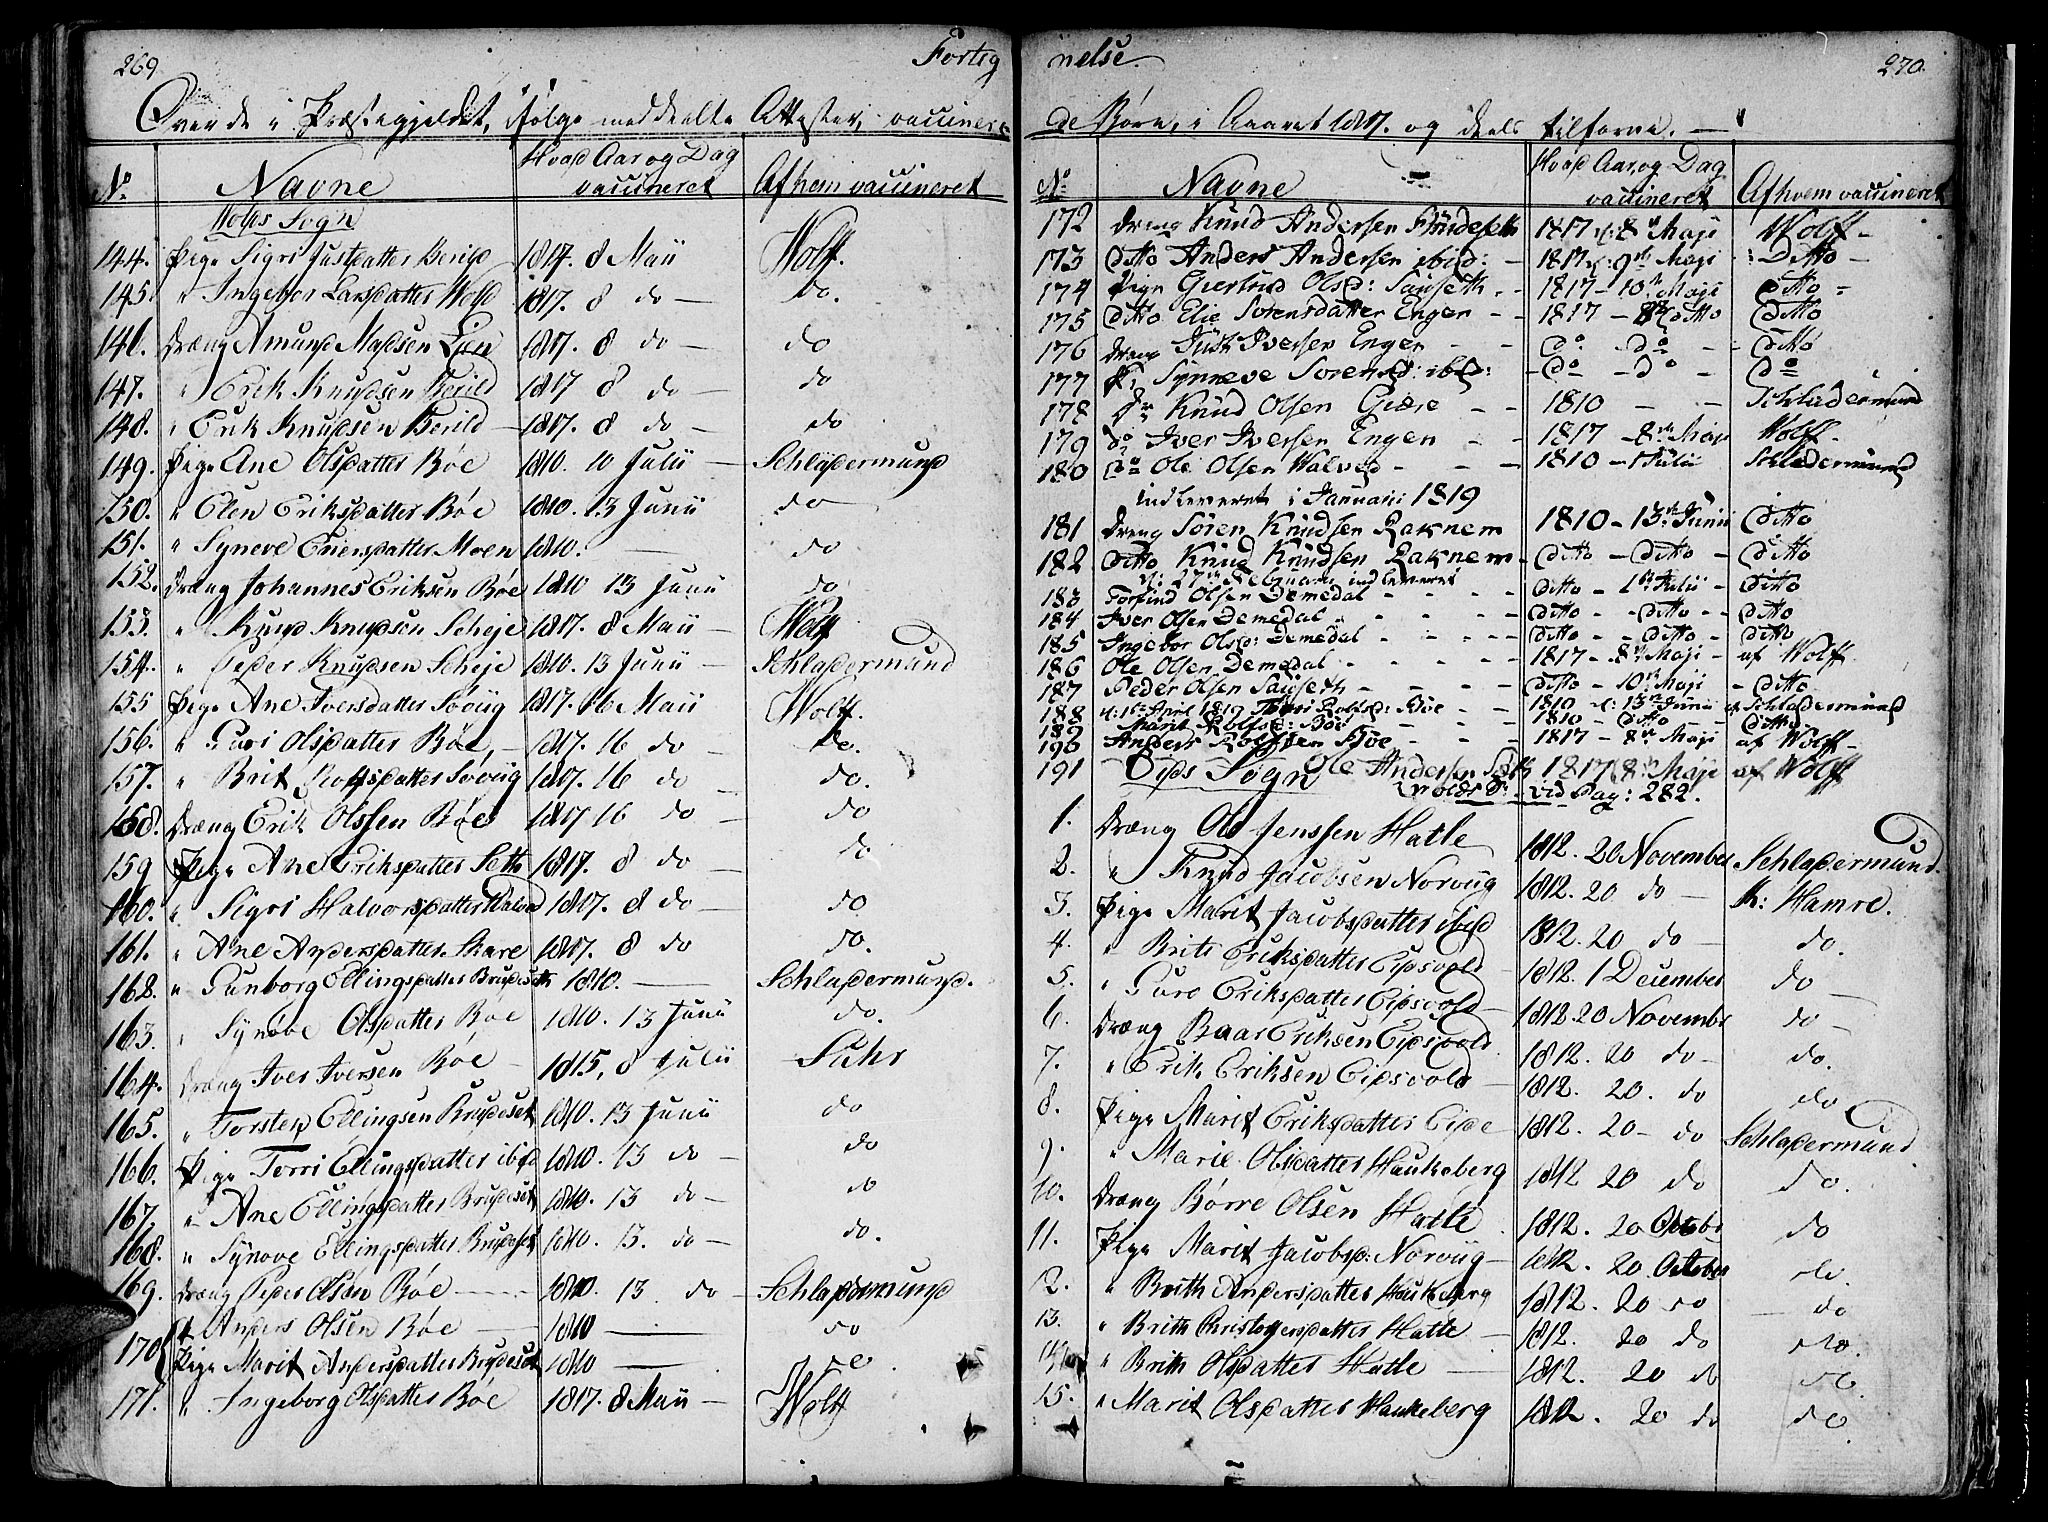 269
Forteg
Over de i Præstegjeldet, ifølge meddeelte Attester, vaccinere
No
Navne
Hvad Aar og Dag vaccineret
Af hvem vaccineret
Volds Sogn
144. Pige Sigri Justdatter Berild 1817. 8 Maii Wolff.
145. " Ingebor Larsdatter Wold 1817. 8 do — Do.
146. Dræng Amund Madsen Lien 1817. 8 do — do
147. " Erik Knudsen Berild 1817 8 do — do
148. " Erik Knudsen Berild — 1817. 8 do — do
149. Pige Ane Olsdatter Bøe 1810. 10 Julii — Schladermund
150. " Elen Eriksdatter Bøe 1810. 13 Junii do —
151. " Syneve Enersdatter Moen 1810. — do
152. Dræng Johannes Eriksen Bøe 1810 13 Junii do
153. " Knud Knudsen Scheje 1817. 8 Maii — Wolff
154. " Peder Knudsen Scheje 1810. 13 Junii — Schladermund
155 Pige Ane Iversdatter Søviig 1817. 16 Maii Wolff.
156. " Guri Olsdatter Bøe, — 1817. 16 do — do.
157. " Brit Rolfsdatter Søviig 1817. 16 do do.
158. Dræng Erik Olssen Bøe 1817 16 do — do
159 Pige Ane Eriksdatter Seth 1817. 8 do do
160. " Sigri Halvorsdatter Walved 1817. 8 do — do
161. " Ane Andersdatter Skare 1817. 8 do do.
162. " Gunborg Ellingsdatter Brudeseth 1810. — Schladermund.
163. " Synøve Olsdatter Bøe 1810. 13 Junii do.
164. Dræng Iver Iversen Bøe — 1815, 8 Julii Suhr
165. " Torsten Ellingsen Brudeset 1810. 13 Junii do
166. Pige Torri Ellingsdatter ibid 1810. 13 do — do
167. " Ane Ellingsdatter Brudeset 1810. 13 do — do
168. " Synove Ellingsdatter Brudeset 1810. 13. do — do.
169. Dræng Peder Olsen Bøe — 1810 13 do — Schladermund
170 " Anders Olsen Bøe — 1810 — do
Pige Marit Andersdatter Brudeset 1810 — do.
171. " Ingeborg Olsdatter Bøe 1817. 8 Maii — Wolff
nelse.
270.
de Børn, i Aaret 1817. og deels tilforne. —
No
Navne
Hvad Aar og Dag vaccineret
Af hvem vaccineret
172 Dreng Knud Andersen Brudeseth 1817 d: 8de Maji Wolff —
173 Ditto Anders Andersen ibid: — 1817 d: 9de Maji Ditto —
174 Pige Giertrud Olsd: Sauseth — 1817 — 10de Maji Ditto —
175 Ditto Elie Sorensdatter Engen — — 1817 — 8de Ditto Ditto
176 Dreng Just Iversen Engen — — Do — Do — Ditto
177 P: Synneve Sorensd: ibd: — Do — Do — Do
178 Dr: Knud Olsen Giære — — 1810 — — Schladermund
179 do Iver Iversen Engen — — 1817 — 8de Maji Wolff —
180 Do Ole Olsen Walved — — — 1810 — 1 Julii Schladermund
indleveret i Januarii 1819
181 Dreng Søren Knudsen Raknem 1810 — 13de Junii Ditto
182 Ditto Knud Knudsen Raknem — Ditto — Ditto — Ditto
d: 27de Februarii indleveret
183 Torfind Olsen Demedal — — — — Ditto — 1ste Julii — Ditto
184 Iver Olsen Demedal — — — — Ditto — Ditto — Ditto
185 Ingebor Olsd: Demedal — — — — Ditto — — Ditto — Ditto
186 Ole Olsen Demedal — — — — 1817 — 8de Maji — af Wolff
187 Peder Olsen Sauseth — — — — Ditto — 10de Maji — Ditto
188 d: 1ste April 1819 Rolfsd: Bøe — — 1810 d: 13de Junii Schladermund
189 Marit Rolfsd: Bøe — — — 1810 — Ditto — Ditto
190 Anders Rolfsen Bøe — — — 1817 — 8de Maji af Wolff —
191 Ole Andersen 1817 8de Maji af Wolff
Eids Sogn
Wolds S: vid Pag: 282.
1. Dræng Ole Jenssen Hatle 1812. 20 November Schladermund.
2. " Knud Jacobsen Norviig 1812. 20 do — K: Hamre.
3. Pige Marit Jacobsdatter ibid 1812. 20 do — do.
4. " Brite Eriksdatter Eidsvold — 1812. 1 December do —
5. " Guro Eriksdatter Eidsvold 1812. 20 November do —
6. Dræng Baar Eriksen Eidsvold 1812. 20 do — do.
7. " Erik Eriksen Eidsvold — 1812. 20. do do
8. Pige Marit Eriksdatter Eide 1812. 20 — do Schladermund
9. " Marie Olsdatter Haukeberg 1812 20 do do.
10. Dræng Børre Olsen Hatle 1812. 20 Octobr do
11. Pige Marit Jacobsd: Norviig — 1812. 20 October do.
12. " Brith Andersdatter Haukeberg 1812. 20 do — do
13. " Brith Christophersdatter Hatle — 1812. 20 do do.
14. " Brith Olsdatter Hatle — 1812. 20 do do.
15. " Marit Olsdatter Haukeberg 1812. 20 do do.